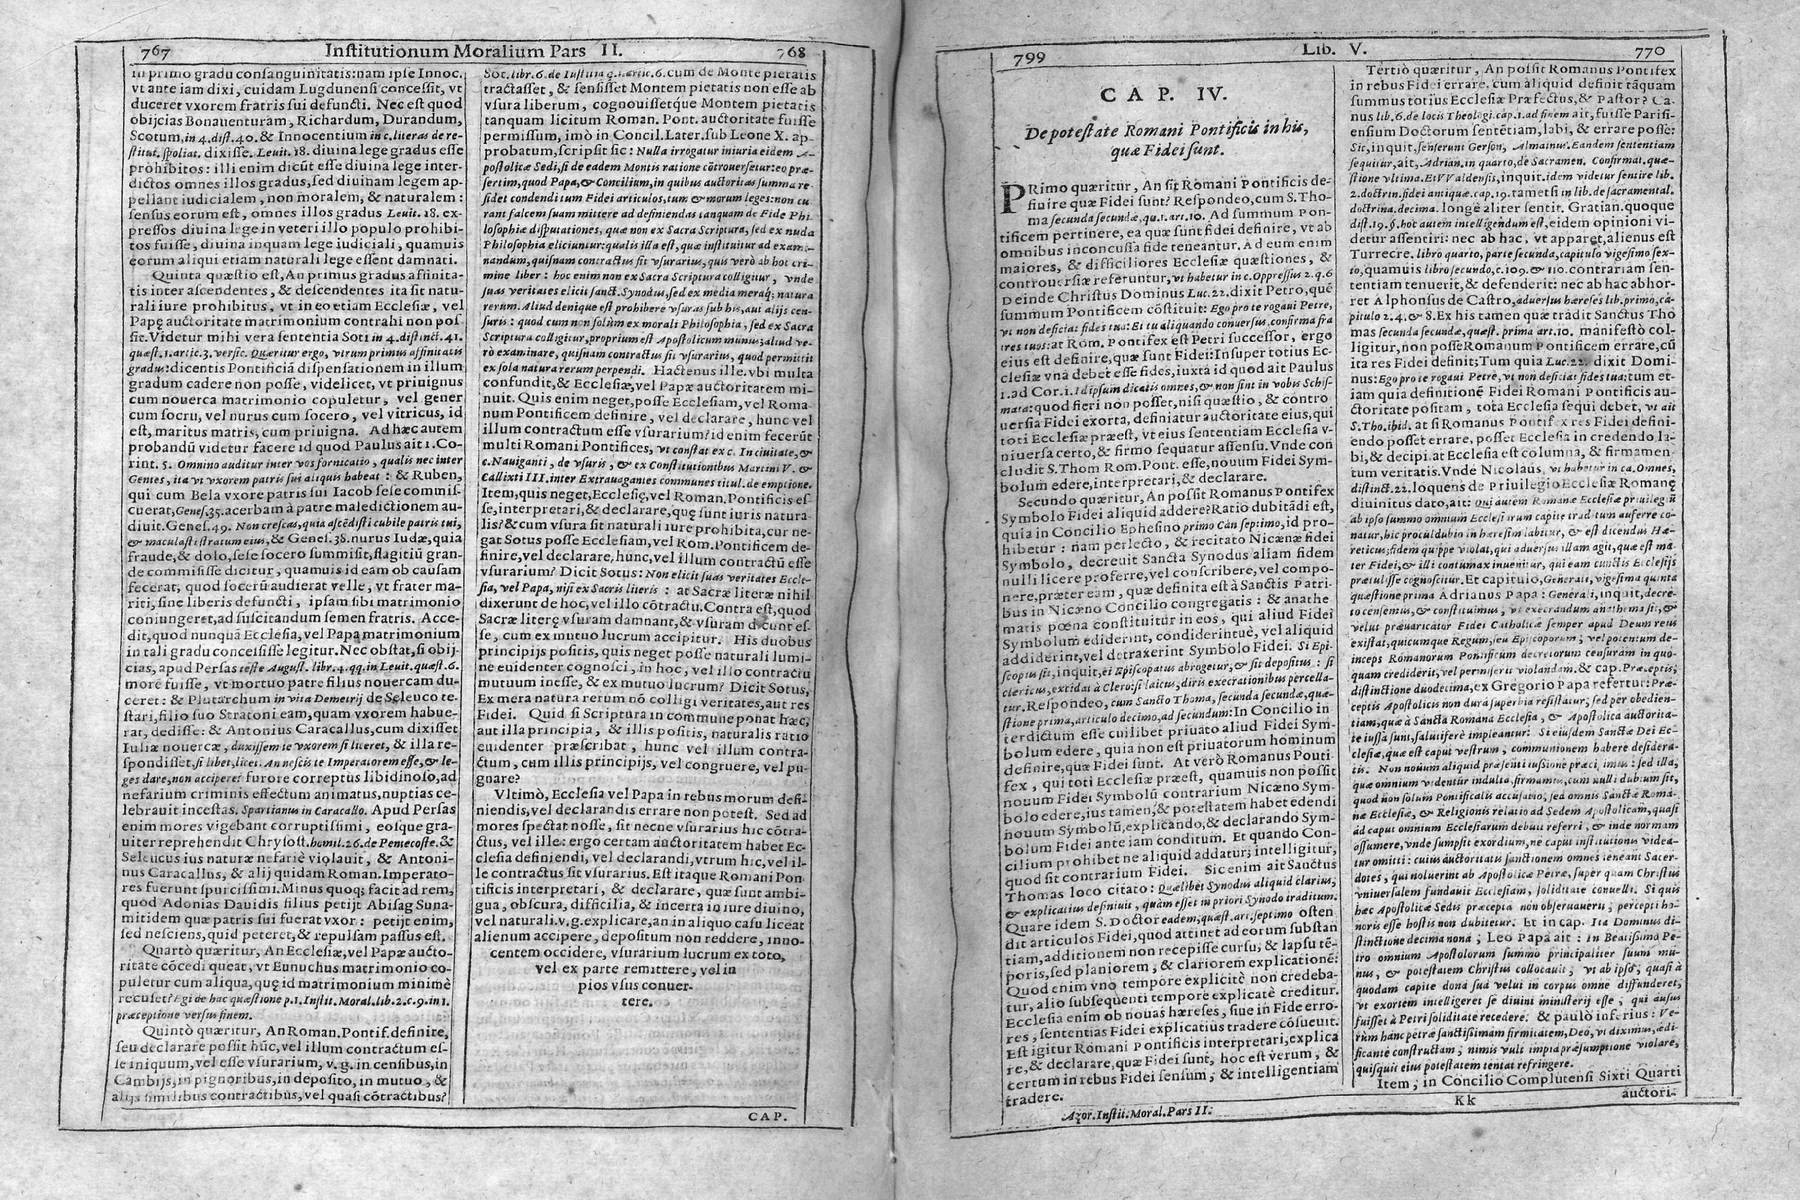 767 Institutionum Moralium Pars II. 768
in primo gradu consanguinitatis: nam ipse Innoc.
vt ante iam dixi, cuidam Lugdunensi concessit, vt
duceret vxorem fratris sui defuncti. Nec est quod
obijcias Bonauenturam, Richardum, Durandum,
Scotum, in 4. dist. 40. & Innocentium in c. literas de re-
stitut. spoliat. dixisse. Leuit. 18. diuina lege gradus esse
prohibitos: illi enim dicūt esse diuina lege inter-
dictos omnes illos gradus, sed diuinam legem ap-
pellant iudicialem, non moralem, & naturalem:
sensus eorum est, omnes illos gradus Leuit. 18. ex-
pressos diuina lege in veteri illo populo prohibi-
tos fuisse, diuina inquam lege iudiciali, quamuis
eorum aliqui etiam naturali lege essent damnati.
Quinta quæstio est, An primus gradus affinita-
tis inter ascendentes, & descendentes ita sit natu-
rali iure prohibitus, vt in eo etiam Ecclesiæ, vel
Papę auctoritate matrimonium contrahi non pos-
sit. Videtur mihi vera sententia Soti in 4. distinct. 41.
quæst. 1. artic. 3. versic. Quæritur ergo, vtrum primus affinitatis
gradus: dicentis Pontificiā dispensationem in illum
gradum cadere non posse, videlicet, vt priuignus
cum nouerca matrimonio copuletur, vel gener
cum socru, vel nurus cum socero, vel vitricus, id
est, maritus matris, cum priuigna. Ad hæc autem
probandū videtur facere id quod Paulus ait 1. Co-
rint. 5. Omnino auditur inter vos fornicatio, qualis nec inter
Gentes, ita vt vxorem patris sui aliquis habeat: & Ruben,
qui cum Bela vxore patris sui Iacob sese commis-
cuerat, Genes. 35. acerbam à patre maledictionem au-
diuit. Genes. 49. Non crescas, quia ascēdisti cubile patris tui,
& maculasti stratum eius, & Genes. 38. nurus Iudæ, quia
fraude, & dolo, sese socero summisit, flagitiū gran-
de commisisse dicitur, quamuis id eam ob causam
fecerat, quod socerū audierat velle, vt frater ma-
riti, sine liberis defuncti, ipsam sibi matrimonio
coniungeret, ad suscitandum semen fratris. Acce-
dit, quod nunquā Ecclesia, vel Papa matrimonium
in tali gradu concesisse legitur. Nec obstat, si obij-
cias, apud Persas teste August. lib. 4. qq. in Leuit. quæst. 6.
more fuisse, vt mortuo patre filius nouercam du-
ceret: & Plutarchum in vita Demetrij de Seleuco te-
stari, filio suo Stratoni eam, quam vxorem habue-
rat, dedisse: & Antonius Caracallus, cum dixisset
Iuliæ nouercæ, duxissem te vxorem si liceret, & illa re-
spondisset, si libet, licet. An nescis te Imperatorem esse, & le-
ges dare, non accipere? furore correptus libidinoso, ad
nefarium criminis effectum animatus, nuptias ce-
lebrauit incestas. Spartianus in Caracallo. Apud Persas
enim mores vigebant corruptissimi, eosque gra-
uiter reprehendit Chrysost. homil. 26. de Pentecoste. &
Seleucus ius naturæ nefariè violauit, & Antoni-
nus Caracallus, & alij quidam Roman. Imperato-
res fuerunt spurcissimi. Minus quoq; facit ad rem,
quod Adonias Dauidis filius petijt Abisag Suna-
mitidem quæ patris sui fuerat vxor: petijt enim,
sed nesciens, quid peteret, & repulsam passus est.
Quartò quæritur, An Ecclesiæ, vel Papæ aucto-
ritate cōcedi queat, vt Eunuchus matrimonio co-
puletur cum aliqua, quę id matrimonium minimè
recuset? Egi de hac quæstione p. 1. Instit. Moral. lib. 2. c. 9. in 1.
præceptione versus finem.
Quintò quæritur, An Roman. Pontif. definire,
seu declarare possit hūc, vel illum contractum es-
se iniquum, vel esse vsurarium, v. g. in censibus, in
Cambijs, in pignoribus, in deposito, in mutuo, &
alijs similibus contractibus, vel quasi cōtractibus?
Sot. lib. 6. de Iustit. q. 1. artic. 6. cum de Monte pietatis
tractasset, & sensisset Montem pietatis non esse ab
vsura liberum, cognouissetque Montem pietatis
tanquam licitum Roman. Pont. auctoritate fuisse
permissum, imò in Concil. Later. sub Leone X. ap-
probatum, scripsit sic: Nulla irrogatur iniuria eidem A-
postolicæ Sedi, si de eadem Montis ratione cōtrouersetur: eo præ-
sertim, quod Papa, & Concilium, in quibus auctoritas summa re-
sidet condendi tum Fidei articulos, tum & morum leges: non cu
rant falcem suam mittere ad definiendas tanquam de Fide Phi-
losophiæ disputationes, quæ non ex Sacra Scriptura, sed ex nuda
Philosophia eliciuntur: qualis illa est, quæ instituitur ad exami-
nandum, quisnam contractus sit vsurarius, quis verò ab hoc cri-
mine liber: hoc enim non ex Sacra Scriptura colligitur, vnde
suas veritates elicit sanct. Synodus, sed ex media meraq; natura
rerum. Aliud denique est prohibere vsuras sub his, aut alijs cen-
suris: quod cum non solùm ex morali Philosophia, sed ex Sacra
Scriptura colligitur, proprium est Apostolicum munus; aliud ve-
rò examinare, quisnam contractus sit vsurarius, quod permittit
ex sola natura rerum perpendi. Hactenus ille. vbi multa
confundit, & Ecclesiæ, vel Papæ auctoritatem mi-
nuit. Quis enim neget, posse Ecclesiam, vel Roma-
num Pontificem definire, vel declarare, hunc vel
illum contractum esse vsurarium? id enim fecerūt
multi Romani Pontifices, vt constat ex c. In ciuitate, &
c. Nauiganti, de vsuris, & ex Constitutionibus Martini V. &
Callixti III. inter Extrauagantes communes titul. de emptione.
Item, quis neget, Ecclesię, vel Roman. Pontificis es-
se, interpretari, & declarare, quę sunt iuris natura-
lis? & cum vsura sit naturali iure prohibita, cur ne-
gat Sotus posse Ecclesiam, vel Rom. Pontificem de-
finire, vel declarare, hunc, vel illum contractū esse
vsurarium? Dicit Sotus: Non elicit suas veritates Eccle-
sia, vel Papa, nisi ex Sacris literis: at Sacræ literæ nihil
dixerunt de hoc, vel illo cōtractu. Contra est, quod
Sacræ literę vsuram damnant, & vsuram dicunt es-
se, cum ex mutuo lucrum accipitur. His duobus
principijs positis, quis neget posse naturali lumi-
ne euidenter cognosci, in hoc, vel illo contractu
mutuum inesse, & ex mutuo lucrum? Dicit Sotus,
Ex mera natura rerum nō colligi veritates, aut res
Fidei. Quid si Scriptura in commune ponat hæc,
aut illa principia, & illis positis, naturalis ratio
euidenter præscribat, hunc vel illum contra-
ctum, cum illis principijs, vel congruere, vel pu-
gnare?
Vltimò, Ecclesia vel Papa in rebus morum defi-
niendis, vel declarandis errare non potest. Sed ad
mores spectat nosse, sit necne vsurarius hic cōtra-
ctus, vel ille: ergo certam auctoritatem habet Ec-
clesia definiendi, vel declarandi, vtrum hic, vel il-
le contractus sit vsurarius. Est itaque Romani Pon-
tificis interpretari, & declarare, quæ sunt ambi-
gua, obscura, difficilia, & incerta in iure diuino,
vel naturali. v. g. explicare, an in aliquo casu liceat
alienum accipere, depositum non reddere, inno-
centem occidere, vsurarium lucrum ex toto,
vel ex parte remittere, vel in
pios vsus conuer-
tere.
CAP.
799 Lib. V. 770
CAP. IV.
De potestate Romani Pontificis in his,
quæ Fidei sunt.
PRimo quæritur, An sit Romani Pontificis de-
finire quæ Fidei sunt? Respondeo, cum S. Tho-
ma secunda secundæ, qu. 1. art. 10. Ad summum Pon-
tificem pertinere, ea quæ sunt fidei definire, vt ab
omnibus inconcussa fide teneantur. Ad eum enim
maiores, & difficiliores Ecclesiæ quæstiones, &
controuersiæ referuntur, vt habetur in c. Oppressus 2. q. 6
Deinde Christus Dominus Luc. 22. dixit Petro, quē
summum Pontificem cōstituit: Ego pro te rogaui Petre,
vt non deficiat fides tua: Et tu aliquando conuersus, confirma fra
tres tuos: at Rom. Pontifex est Petri successor, ergo
eius est definire, quæ sunt Fidei: Insuper totius Ec-
clesiæ vna debet esse fides, iuxta id quod ait Paulus
1. ad Cor. 1. Id ipsum dicatis omnes, & non sint in vobis Schis-
mata: quod fieri non posset, nisi quæstio, & contro
uersia Fidei exorta, definiatur auctoritate eius, qui
toti Ecclesiæ præest, vt eius sententiam Ecclesia v-
niuersa certo, & firmo sequatur assensu. Vnde con
cludit S. Thom Rom. Pont. esse, nouum Fidei Sym-
bolum edere, interpretari, & declarare.
Secundo quæritur, An possit Romanus Pontifex
Symbolo Fidei aliquid addere? Ratio dubitādi est,
quia in Concilio Ephesino primo Can septimo, id pro-
hibetur: nam perlecto, & recitato Nicænæ fidei
Symbolo, decreuit Sancta Synodus aliam fidem
nulli licere proferre, vel conscribere, vel compo-
nere, præter eam, quæ definita est à Sanctis Patri-
bus in Nicæno Concilio congregatis: & anathe
matis pœna constituitur in eos, qui aliud Fidei
Symbolum ediderint, condiderintue, vel aliquid
addiderint, vel detraxerint Symbolo Fidei. Si Epi-
scopus sit, inquit, ei Episcopatus abrogetur, & sit depositus: si
clericus, excidat à Clero: si laicus, diris execrationibus percella-
tur. Respondeo, cum Sancto Thoma, secunda secundæ, quæ-
stione prima, articulo decimo, ad secundum: In Concilio in
terdictum esse cuilibet priuato aliud Fidei Sym-
bolum edere, quia non est priuatorum hominum
definire, quæ Fidei sunt. At verò Romanus Ponti-
fex, qui toti Ecclesiæ præest, quamuis non possit
nouum Fidei Symbolū contrarium Nicæno Sym-
bolo edere, ius tamen, & potestatem habet edendi
nouum Symbolū, explicando, & declarando Sym-
bolum Fidei ante iam conditum. Et quando Con-
cilium prohibet ne aliquid addatur, intelligitur,
quod sit contrarium Fidei. Sic enim ait Sanctus
Thomas loco citato: Quælibet Synodus aliquid clarius,
& explicatius definiuit, quàm esset in priori Synodo traditum.
Quare idem S. Doctor eadem, quæst. art. septimo osten
dit articulos Fidei, quod attinet ad eorum substan
tiam, additionem non recepisse cursu, & lapsu tē-
poris, sed planiorem, & clariorem explicationem:
Quod enim vno tempore explicitè non credeba-
tur, alio subsequenti tempore explicatè creditur.
Ecclesia enim ob nouas hæreses, siue in Fide erro-
res, sententias Fidei explicatius tradere cōsueuit.
Est igitur Romani Pontificis interpretari, explica
re, & declarare, quæ Fidei sunt, hoc est verum, &
certum in rebus Fidei sensum, & intelligentiam
tradere.
Tertiò quæritur, An possit Romanus Pontifex
in rebus Fidei errare, cum aliquid definit tāquam
summus totius Ecclesiæ Præfectus, & Pastor? Ca-
nus lib. 6. de locis Theologi. cap. 1. ad finem ait, fuisse Parisi-
ensium Doctorum sentētiam, labi, & errare posse:
Sic, inquit, senserunt Gerson, Almainus. Eandem sententiam
sequitur, ait, Adrian, in quarto, de Sacramen. Confirmat. quæ-
stione vltima. Et VValdensis, inquit. idem videtur sentire lib.
2. doctrin. fidei antiquæ. cap. 19. tametsi in lib. de sacramental.
doctrina. decima. longè aliter sentit. Gratian. quoque
dist. 19. §. hoc autem intelligendum est, eidem opinioni vi-
detur assentiri: nec ab hac, vt apparet, alienus est
Turrecre. libro quarto, parte secunda, capitulo vigesimo sex-
to, quamuis libro secundo, c. 109. & 110. contrariam sen-
tentiam tenuerit, & defenderit: nec ab hac abhor-
ret Alphonsus de Castro, aduersus hæreses lib. primo, cá-
pitulo 2. 4. & 8. Ex his tamen quæ tradit Sanctus Tho
mas secunda secundæ, quæst. prima art. 10. manifestò col-
ligitur, non posse Romanum Pontificem errare, cū
ita res Fidei definit; Tum quia Luc. 22. dixit Domi-
nus: Ego pro te rogaui Petre, vt non deficiat fides tua; tum et-
iam quia definitionē Fidei Romani Pontificis au-
ctoritate positam, tota Ecclesia sequi debet, vt ait
S. Tho. ibid. at si Romanus Pontifex res Fidei defini-
endo posset errare, posset Ecclesia in credendo la-
bi, & decipi. at Ecclesia est columna, & firmamen-
tum veritatis. Vnde Nicolaus, vt habetur in ca. Omnes,
distinct. 22. loquens de Priuilegio Ecclesiæ Romanę
diuinitus dato, ait: Qui autem Romanæ Ecclesiæ priuilegiū
ab ipso summo omnium Ecclesiarum capite traditum auferre co-
natur, hic proculdubio in hæresim labitur, & est dicendus Hæ-
reticus; fidem quippe violat, qui aduersus illam agit, quæ est ma-
ter Fidei, & illi contumax inuenitur, qui eam cunctis Ecclesijs
prætulisse cognoscitur. Et capitulo, Generali, vigesima quinta
quæstione prima Adrianus Papa: Generali, inquit, decre-
to censemus, & constituimus, vt execrandum anathema sit, &
velut præuaricator Fidei Catholicæ semper apud Deum reus
existat, quicumque Regum, seu Episcoporum, vel potentum de-
inceps Romanorum Pontificum decretorum censuram in quo-
quam crediderit, vel permiserit violandam. & cap. Præceptis,
distinctione duodecima, ex Gregorio Papa refertur: Præ-
ceptis Apostolicis non dura superbia resistatur, sed per obedien-
tiam, quæ à Sancta Romana Ecclesia, & Apostolica auctorita-
te iussa sunt, salutiferè impleantur: Si eiusdem Sanctæ Dei Ec-
clesiæ, quæ est caput vestrum, communionem habere desidera-
tis. Non nouum aliquid præsenti iussione præcipimus: sed illa,
quæ omnium videntur indulta, firmamus, cum nulli dubium sit,
quod non solum Pontificalis accusatio, sed omnis Sanctæ Roma-
næ Ecclesiæ, & Religionis relatio ad Sedem Apostolicam, quasi
ad caput omnium Ecclesiarum debuit referri, & inde normam
assumere, vnde sumpsit exordium, ne caput institutionis videa-
tur omitti: cuius auctoritatis sanctionem omnes teneant Sacer-
dotes, qui noluerint ab Apostolicæ Petræ, super quam Christus
vniuersalem fundauit Ecclesiam, soliditate conuelli. Si quis
hæc Apostolicæ Sedis præcepta non obseruauerit, percepti ho-
noris esse hostis non dubitetur. Et in cap. Ita Dominus di-
stinctione decima nona, Leo Papa ait: in Beatissimo Pe-
tro omnium Apostolorum summo principaliter suum mu-
nus, & potestatem Christus collocauit, vt ab ipso, quasi à
quodam capite dona sua velut in corpus omne diffunderet,
vt exortem intelligeret se diuini ministerij esse, qui ausus
fuisset à Petri soliditate recedere. & paulò inferius: Ve-
rùm hanc petræ sanctissimam firmitatem, Deo, vt diximus, ædi-
ficante constructam, nimis vult impia præsumptione violare,
quisquis eius potestatem tentat refringere.
Item, in Concilio Complutensi Sixti Quarti
Azor. Instit. Moral. Pars II. Kk auctori-